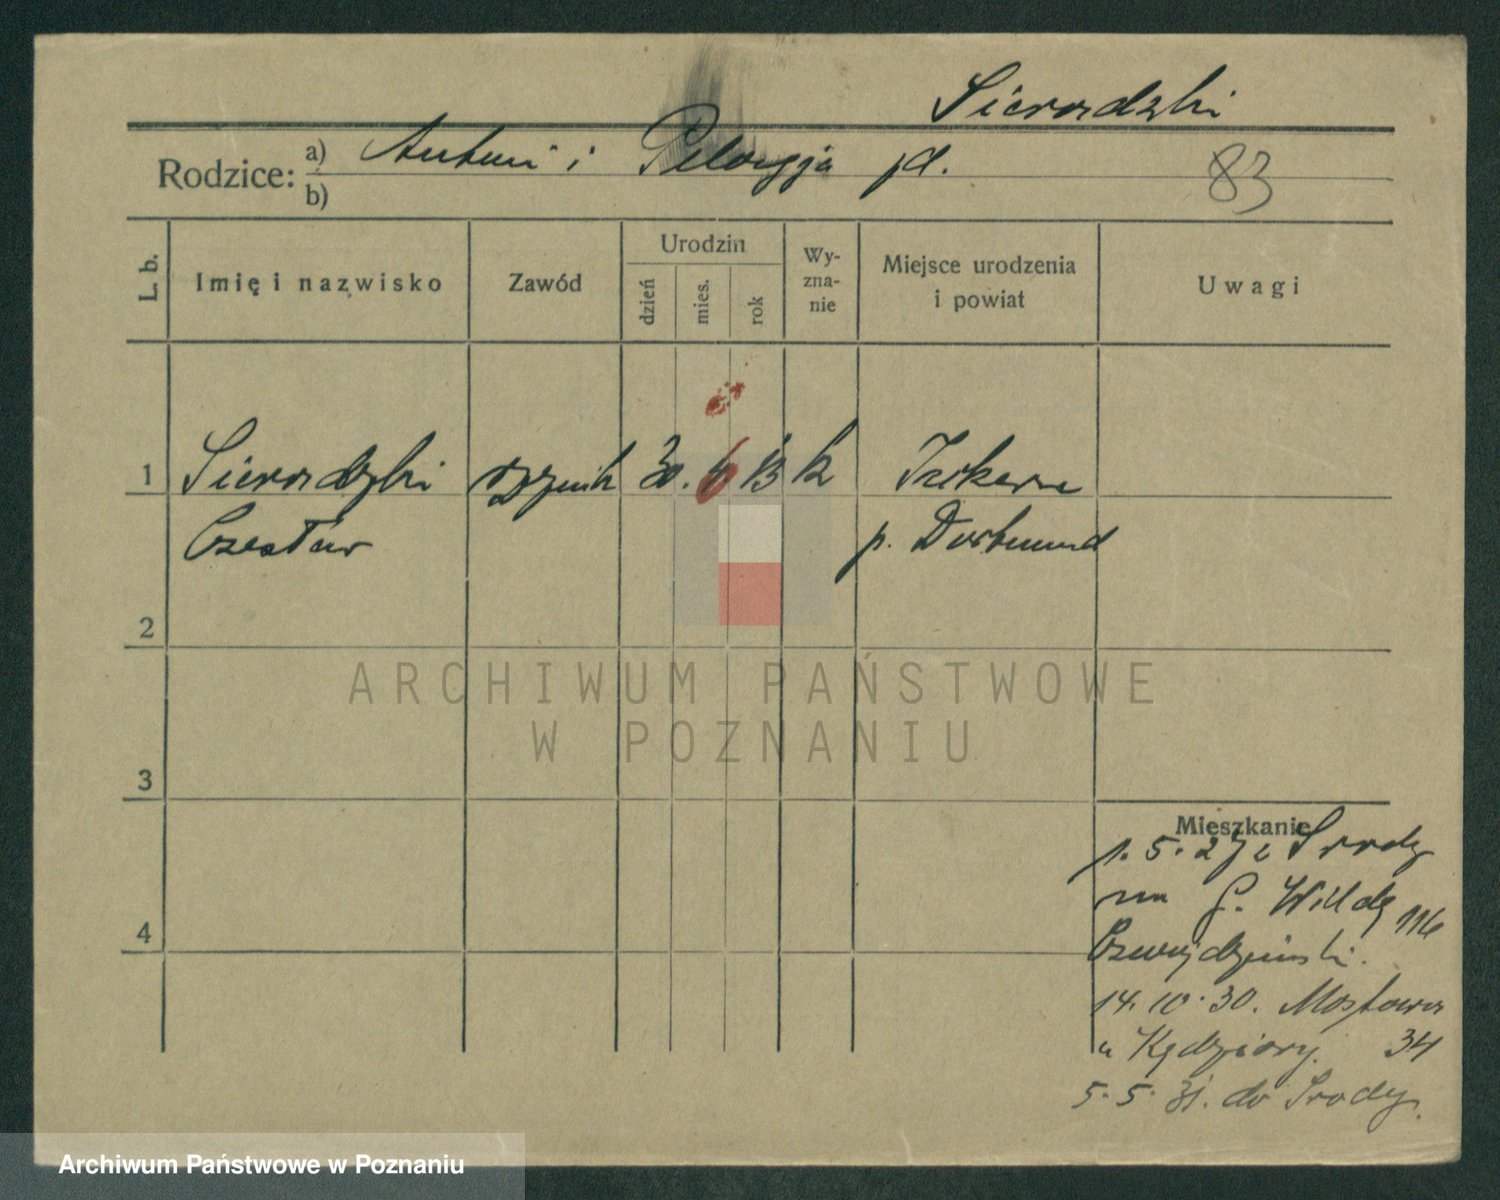 Sieradzki
Rodzice: a) Antoni i Pelagja pl.
b)
83
L. b.
Imię i nazwisko
Zawód
Urodzin
dzień
mies.
rok
Wy-
zna-
nie
Miejsce urodzenia
i powiat
Uwagi
1 Sieradzki 30. 6 13 k
Czesław p. Dortmund
2
3
4
Mieszkanie
1. 5. 27 z Środy
na G. Wildę 116
14. 10. 30. Mostowa
u Kędziory. 34
5. 5. 31. do Środy.
ARCHIWUM PAŃSTWOWE
W POZNANIU
Archiwum Państwowe w Poznaniu